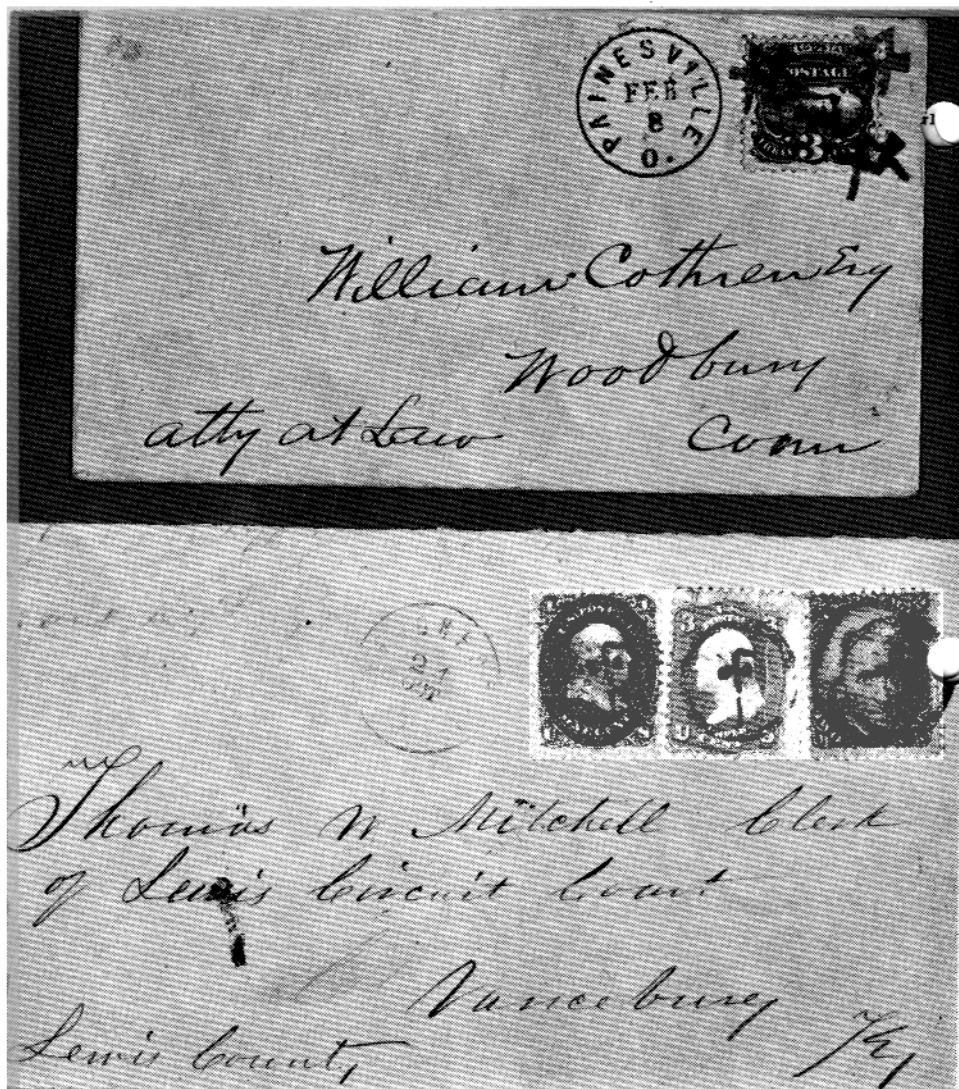 PAINESVILLE O.
FEB
8
POSTAGE
3
William Cothren Esq
Woodbury
atty at Law Conn
Thomas W Mitchell Clerk
of Lewis Circuit Court
Vanceburg
Lewis County Ky